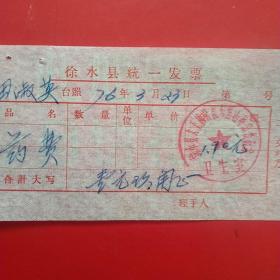 徐水县统一发票
田淑英 台照 76年3月23日 第 号
品名 数量 单位 单价
药费 1.90元
卫生室
合计大写 壹元玖角正
经手人